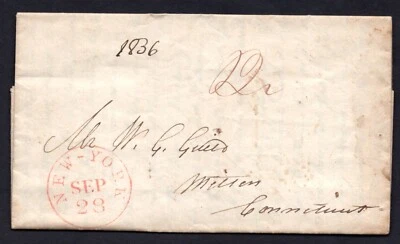 1836
Mr W. G. Guild
Wilton
Connecticut
NEW-YORK
SEP
28